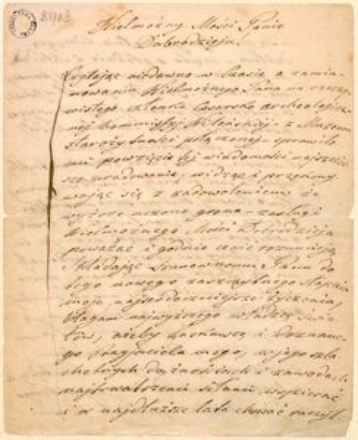 Wielmożny Mości Panie
Dobrodzieju!
Czytając niedawno w Czasie o zamia-
nowaniu Wielmożnego Pana na rzeczy-
wistego członka Cesarsko archeologicz-
nej kommissyi Wileńskiej z Muzeum
starożytności połączonej sprawiło
mi powzięcie tej wiadomości najszczer-
sze uradowanie, widząc i przekony-
wając się z zadowoleniem że
wyższe uczone grona zasługi
Wielmożnego Mości Dobrodzieja
poważać i godnie cenić rozumieją
Składając Szanownemu Panu do
tego nowego zaszczytnego stopnia
moje najserdeczniejsze życzenia
błagam najwyższego władcę Świa-
tów, ażeby łaskawego i doznane-
go przyjaciela mego, w jego szla-
chetnych dążnościach i zawodach
siłami wspierać
i w najdłuższe lata chować raczył.